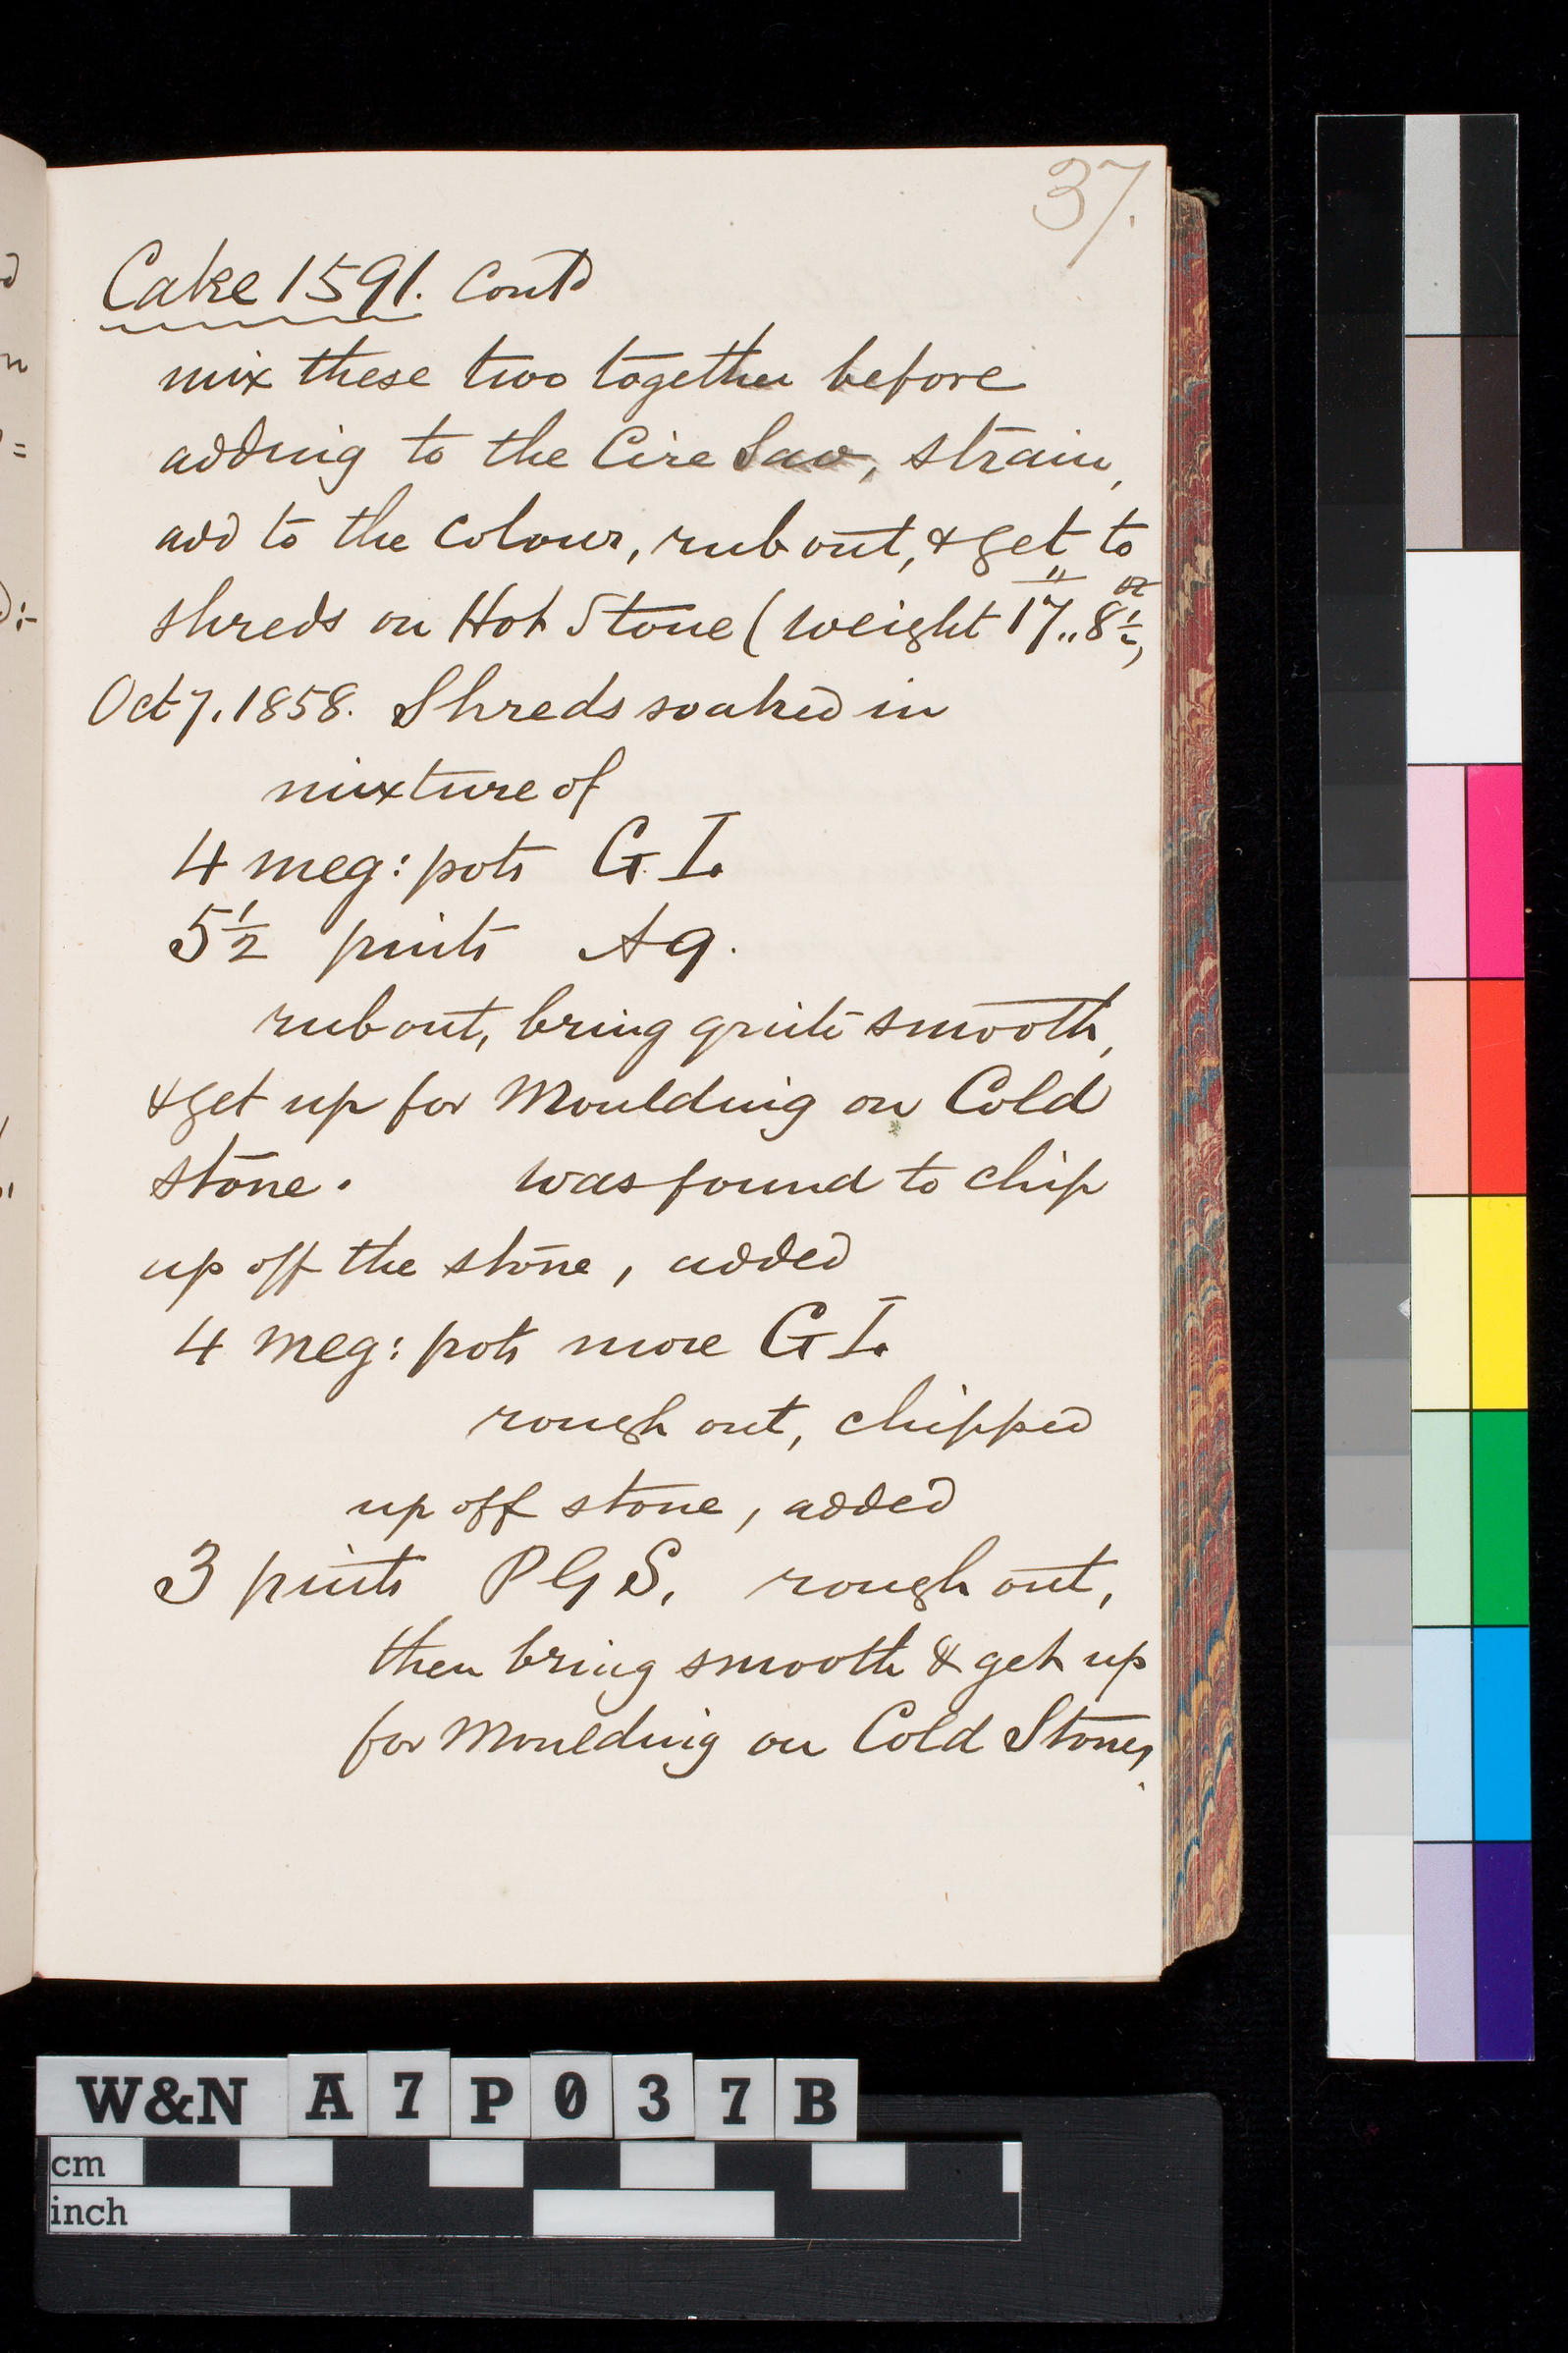 37.
Cake 1591. Contd
mix these two together before
adding to the Cire Sav, strain,
add to the Colour, rub out, & get to
shreds on Hot Stone (weight 17 " 8½ oz,
Oct 7. 1858. Shreds soaked in
mixture of
4 meg: pots G.I.
5½ pints Aq.
rub out, bring quite smooth,
& get up for Moulding on Cold
stone. was found to chip
up off the stone, added
4 meg: pots more G I.
rough out, chipped
up off stone, added
3 pints P G S. rough out,
then bring smooth & get up
for Moulding on Cold Stone,
W&N A7P037B
cm
inch